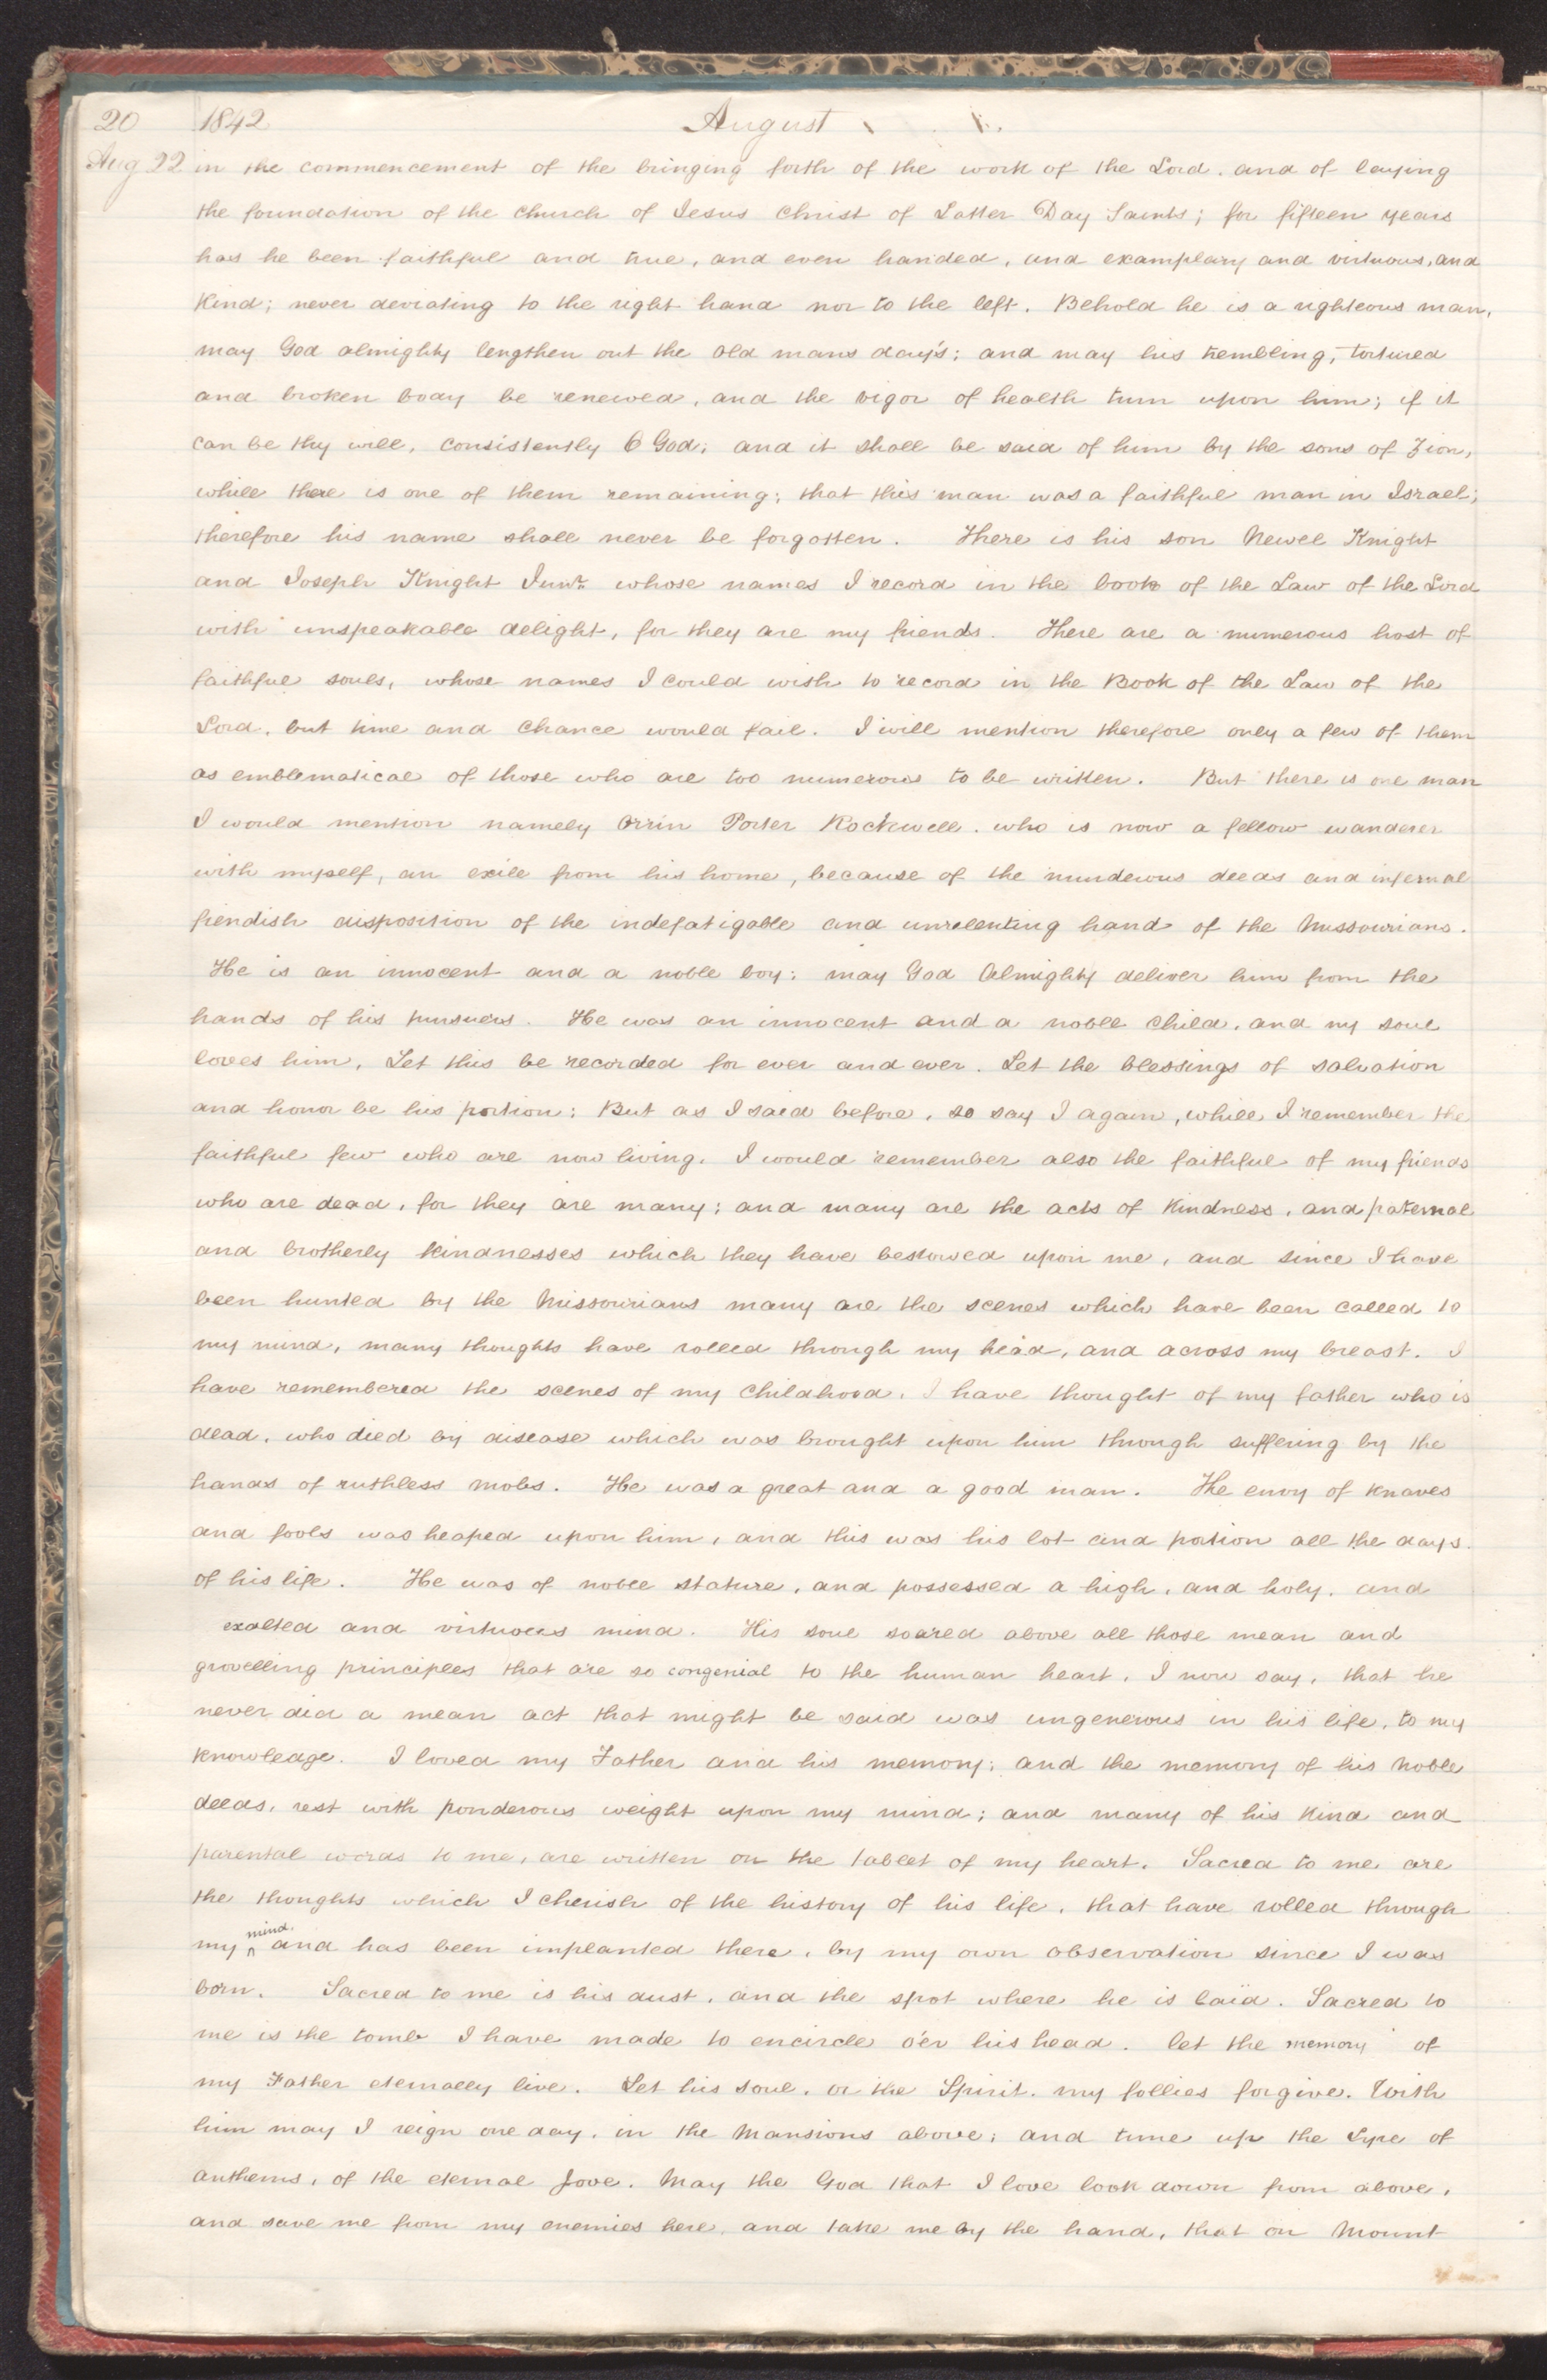 20 1842 August
Aug 22 in the commencement of the bringing forth of the work of the Lord. and of laying
the foundation of the church of Jesus Christ of Latter Day Saints; for fifteen years
has he been faithful and true, and even handed, and examplary and virtuous, and
kind; never deviating to the right hand nor to the left. Behold he is a righteous man,
may God almighty lengthen out the old mans day's; and may his trembling, tortured
and broken body be renewed, and the vigor of health turn upon him; if it
can be thy will, consistently O God; and it shall be said of him by the sons of Zion,
while there is one of them remaining; that this man was a faithful man in Israel;
therefore his name shall never be forgotten. There is his son Newel Knight
and Joseph Knight Junr. whose names I record in the book of the Law of the Lord
with unspeakable delight, for they are my friends. There are a numerous host of
faithful souls, whose names I could wish to record in the Book of the Law of the
Lord, but time and chance would fail. I will mention therefore only a few of them
as emblematical of those who are too numerous to be written. But there is one man
I would mention namely Orrin Porter Rockwell. who is now a fellow wanderer
with myself, an exile from his home, because of the murderous deeds and infernal
fiendish disposition of the indefatigable and unrelenting hand of the Missourians.
He is an innocent and a noble boy; may God Almighty deliver him from the
hands of his pursuers. He was an innocent and a noble child, and my soul
loves him, Let this be recorded for ever and ever. Let the blessings of salvation
and honor be his portion; But as I said before, so say I again, while I remember the
faithful few who are now living. I would remember also the faithful of my friends
who are dead, for they are many; and many are the acts of kindness, and paternal
and brotherly kindnesses which they have bestowed upon me, and since I have
been hunted by the Missourians many are the scenes which have been called to
my mind, many thoughts have rolled through my head, and across my breast. I
have remembered the scenes of my childhood. I have thought of my father who is
dead, who died by disease which was brought upon him through suffering by the
hands of ruthless mobs. He was a great and a good man. The envy of knaves
and fools was heaped upon him, and this was his lot and portion all the days.
of his life. He was of noble stature, and possessed a high, and holy, and
exalted and virtuous mind. His soul soared above all those mean and
grovelling principles that are so congenial to the human heart. I now say, that he
never did a mean act that might be said was ungenerous in his life, to my
knowledge. I loved my Father and his memory; and the memory of his noble
deeds, rest with ponderous weight upon my mind; and many of his kind and
parental words to me, are written on the tablet of my heart. Sacred to me are
the thoughts which I cherish of the history of his life, that have rolled through
my ^mind.^ and has been implanted there, by my own observation since I was
born. Sacred to me is his dust, and the spot where he is laid. Sacred to
me is the tomb I have made to encircle o'er his head. let the memory of
my Father eternally live. Let his soul, or the Spirit. my follies forgive. With
him may I reign one day, in the Mansions above; and tune up the Lyre of
anthems, of the eternal Jove. May the God that I love look down from above,
and save me from my enemies here, and take me by the hand, that on Mount